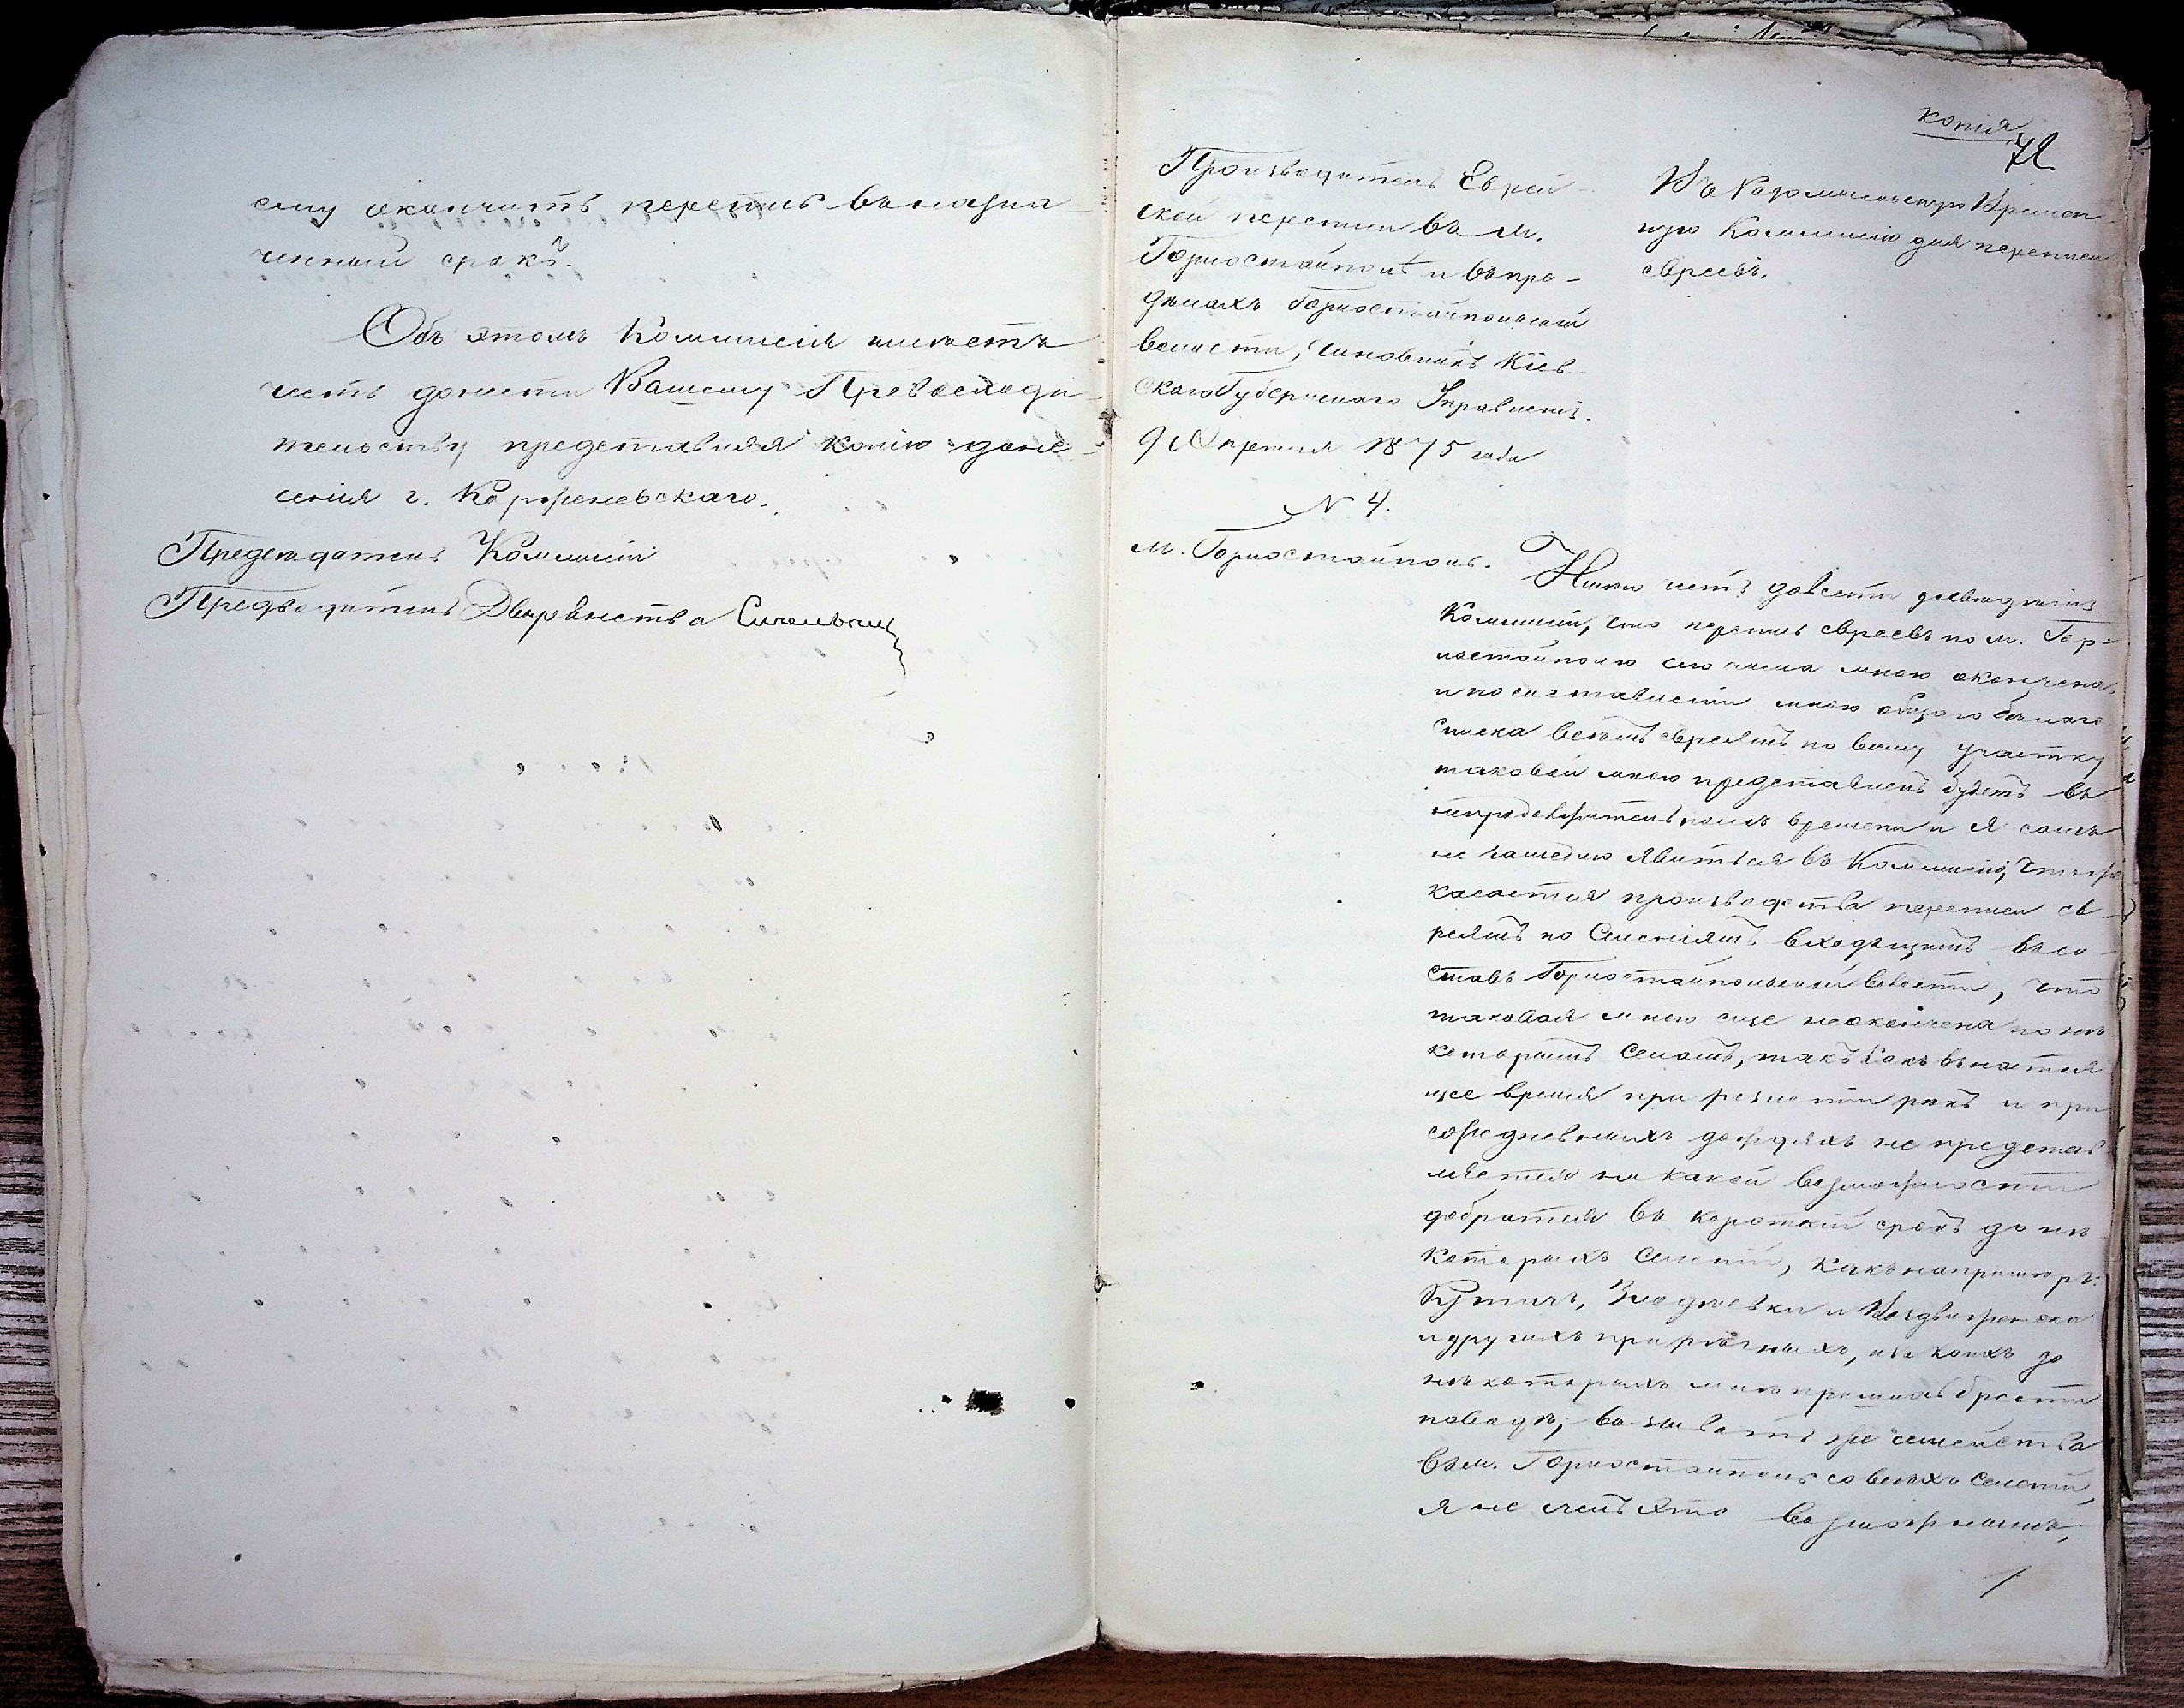 ему окончить перепись въ назна-
ченный срокъ.
Объ этомъ Коммисія имѣетъ
честь донести Вашему Превосходи-
тельству представляя копію доне-
сенія г. Корженевскаго.
Предсѣдатель Коммисіи
Предводитель Дворянства
копія
72
Производитель Еврей-
ской переписи въ м.
Горностайполѣ и въ пре-
дѣлахъ Горностайпольской
волости, чиновникъ Кіев-
скаго Губернскаго Правленія.
9 Апрѣля 1875 года
N 4.
м. Горностайполь.
Въ Радомысльскую Времен-
ную Коммисію для переписи
евреевъ.
Имѣю честь довести до свѣдѣнія
Коммисіи, что перепись евреевъ по м. Гор-
ностайполю сего числа мною окончена,
и по составленіи мною общаго бѣлаго
списка всѣмъ евреямъ по всему участку
таковой мною представленъ будетъ въ
непродолжительномъ времени и я самъ
не замедлю явиться въ Коммисію, что же
касается производства переписи ев-
реямъ по Селеніямъ входящимъ въ со-
ставъ Горностайпольской волости, что
таковая мною еще неокончена по нѣ-
которымъ Селамъ, такъ какъ въ настоя-
щее время при разлитіи рекъ и при
содневныхъ дождяхъ не представ-
ляется ни какой возможности
добраться въ короткій срокъ до нѣ-
которыхъ Селеній, какъ напримѣръ:
и Воздвиженска
и другихъ прирѣчныхъ, изъ коихъ до
нѣкоторыхъ мнѣ пришлось брести
по водѣ; вызывать же семейства
въ м. Горностайполь со всѣхъ Селеній,
я не счелъ это возможнымъ,